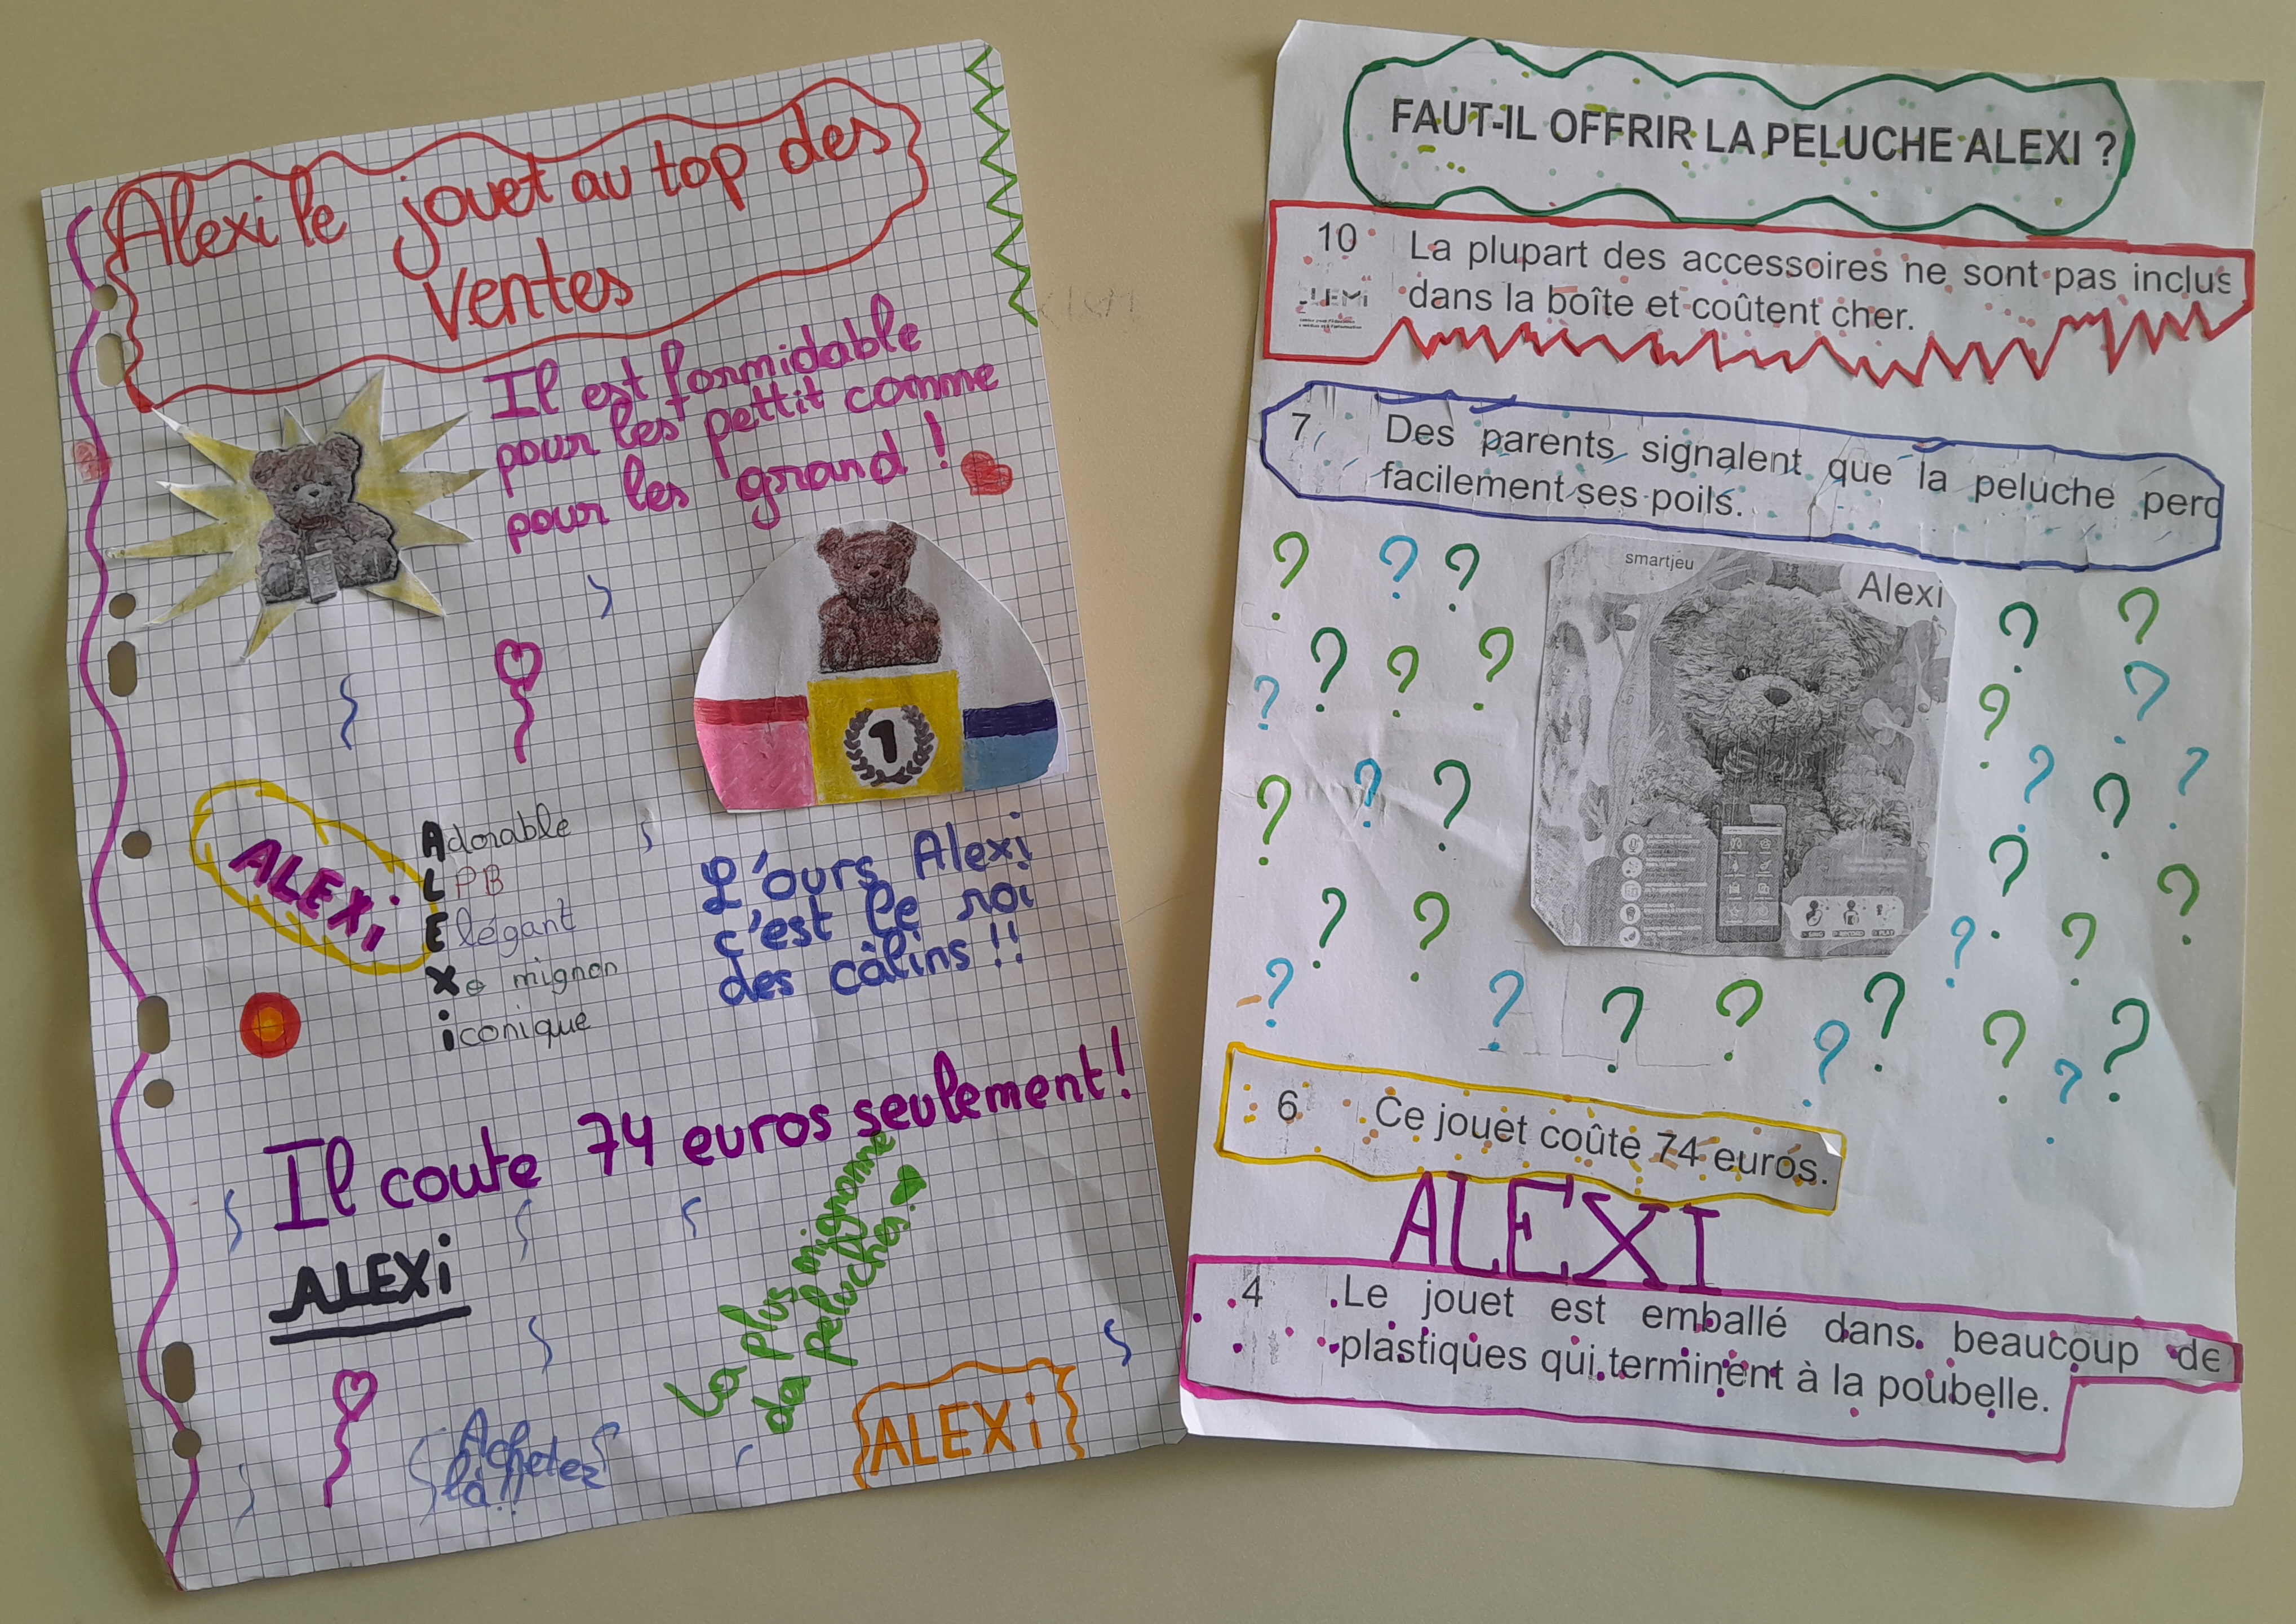 Alexi le jouet au top des
ventes
Il est formidable
pour les pettit comme
pour les grand !
1
ALEXi
Adorable
LPB
Elégant
Xo mignon
iconique
L'ours Alexi
c'est le roi
des câlins !!
Il coute 74 euros seulement!
ALEXi
La plus mignonne
da peluches.
Achetez
là !!
ALEXi
FAUT-IL OFFRIR LA PELUCHE ALEXI ?
10 La plupart des accessoires ne sont pas inclus
dans la boîte et coûtent cher.
LEMi
7 Des parents signalent que la peluche perd
facilement ses poils.
smartjeu
Alexi
6 Ce jouet coûte 74 euros.
ALEXI
4 Le jouet est emballé dans beaucoup de
plastiques qui terminent à la poubelle.